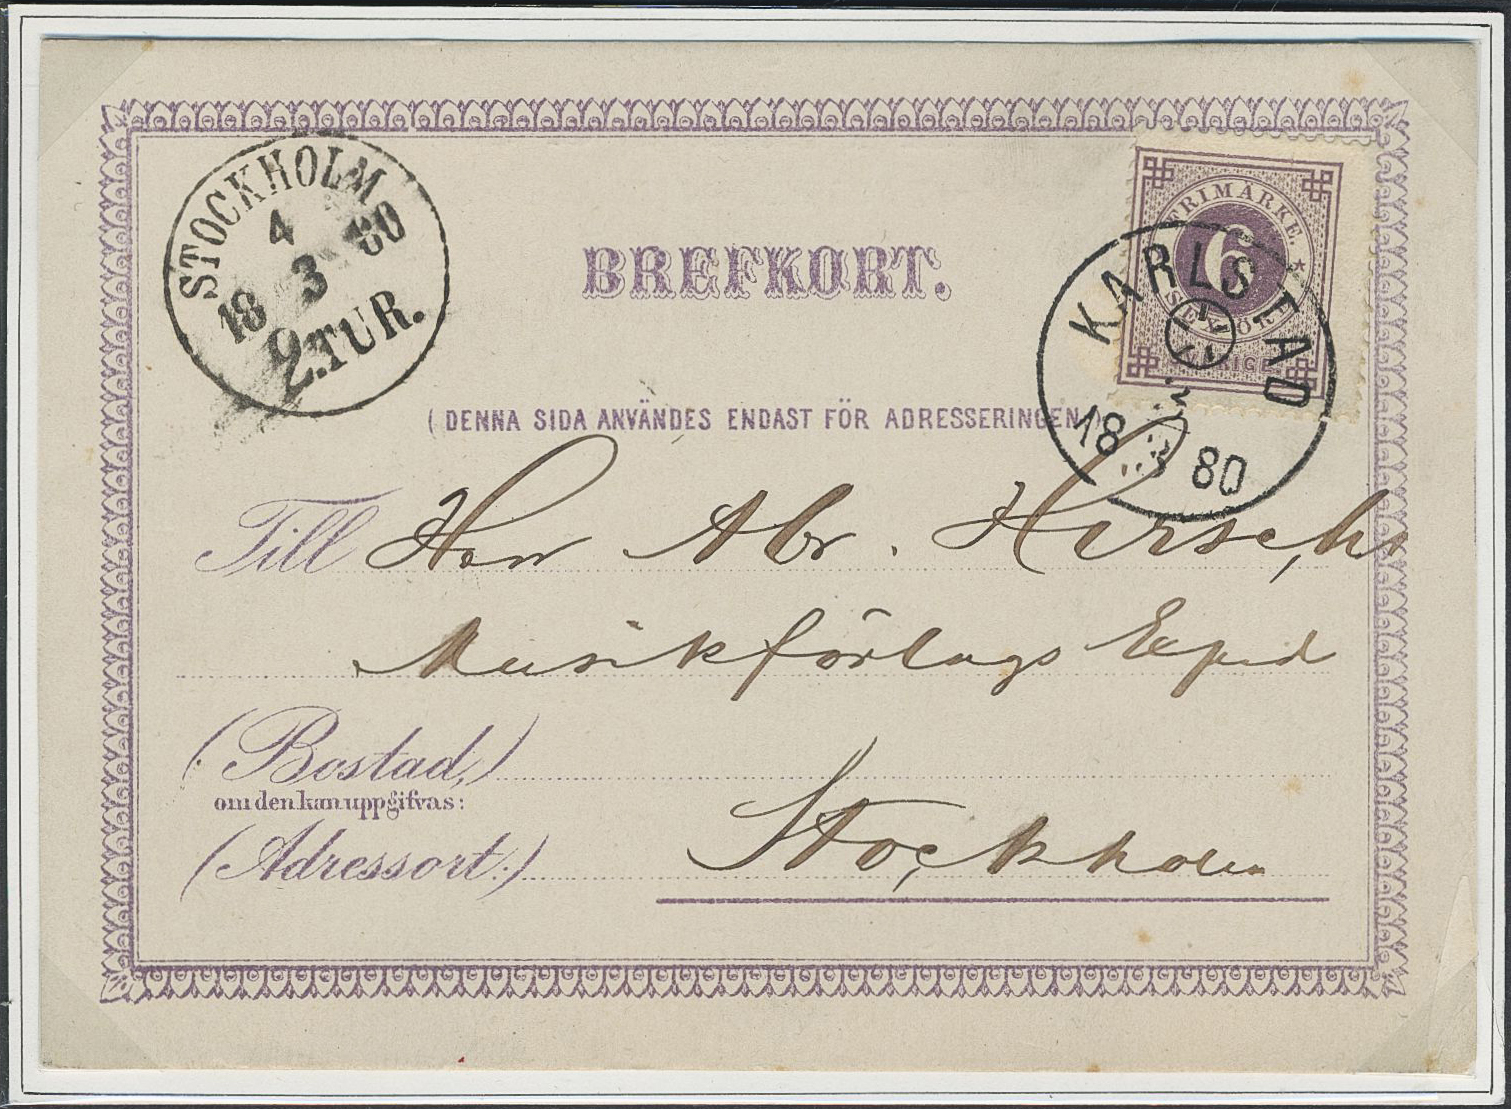 STOCKHOLM
4
18 3 80
2.TUR.
BREFKORT.
FRIMÄRKE.
6
SEX ÖRE
SVERIGE
KARLSTAD
18 80
(DENNA SIDA ANVÄNDES ENDAST FÖR ADRESSERINGEN.)
Till Herr Abr. Hirsch
Musikförlags Exped
(Bostad,)
om den kan uppgifvas:
(Adressort.) Stockholm